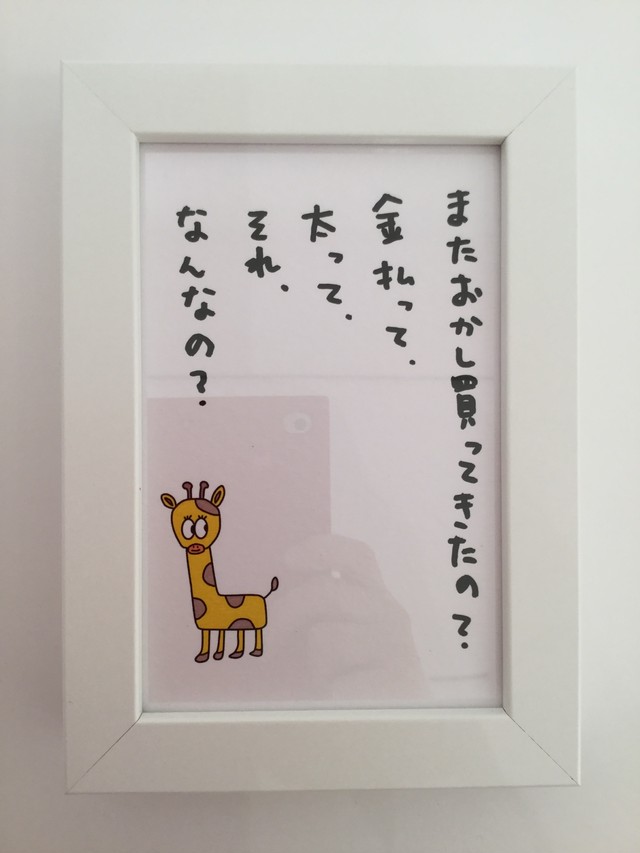 またおかし買ってきたの?
金払って、
太って、
それ、
なんなの?